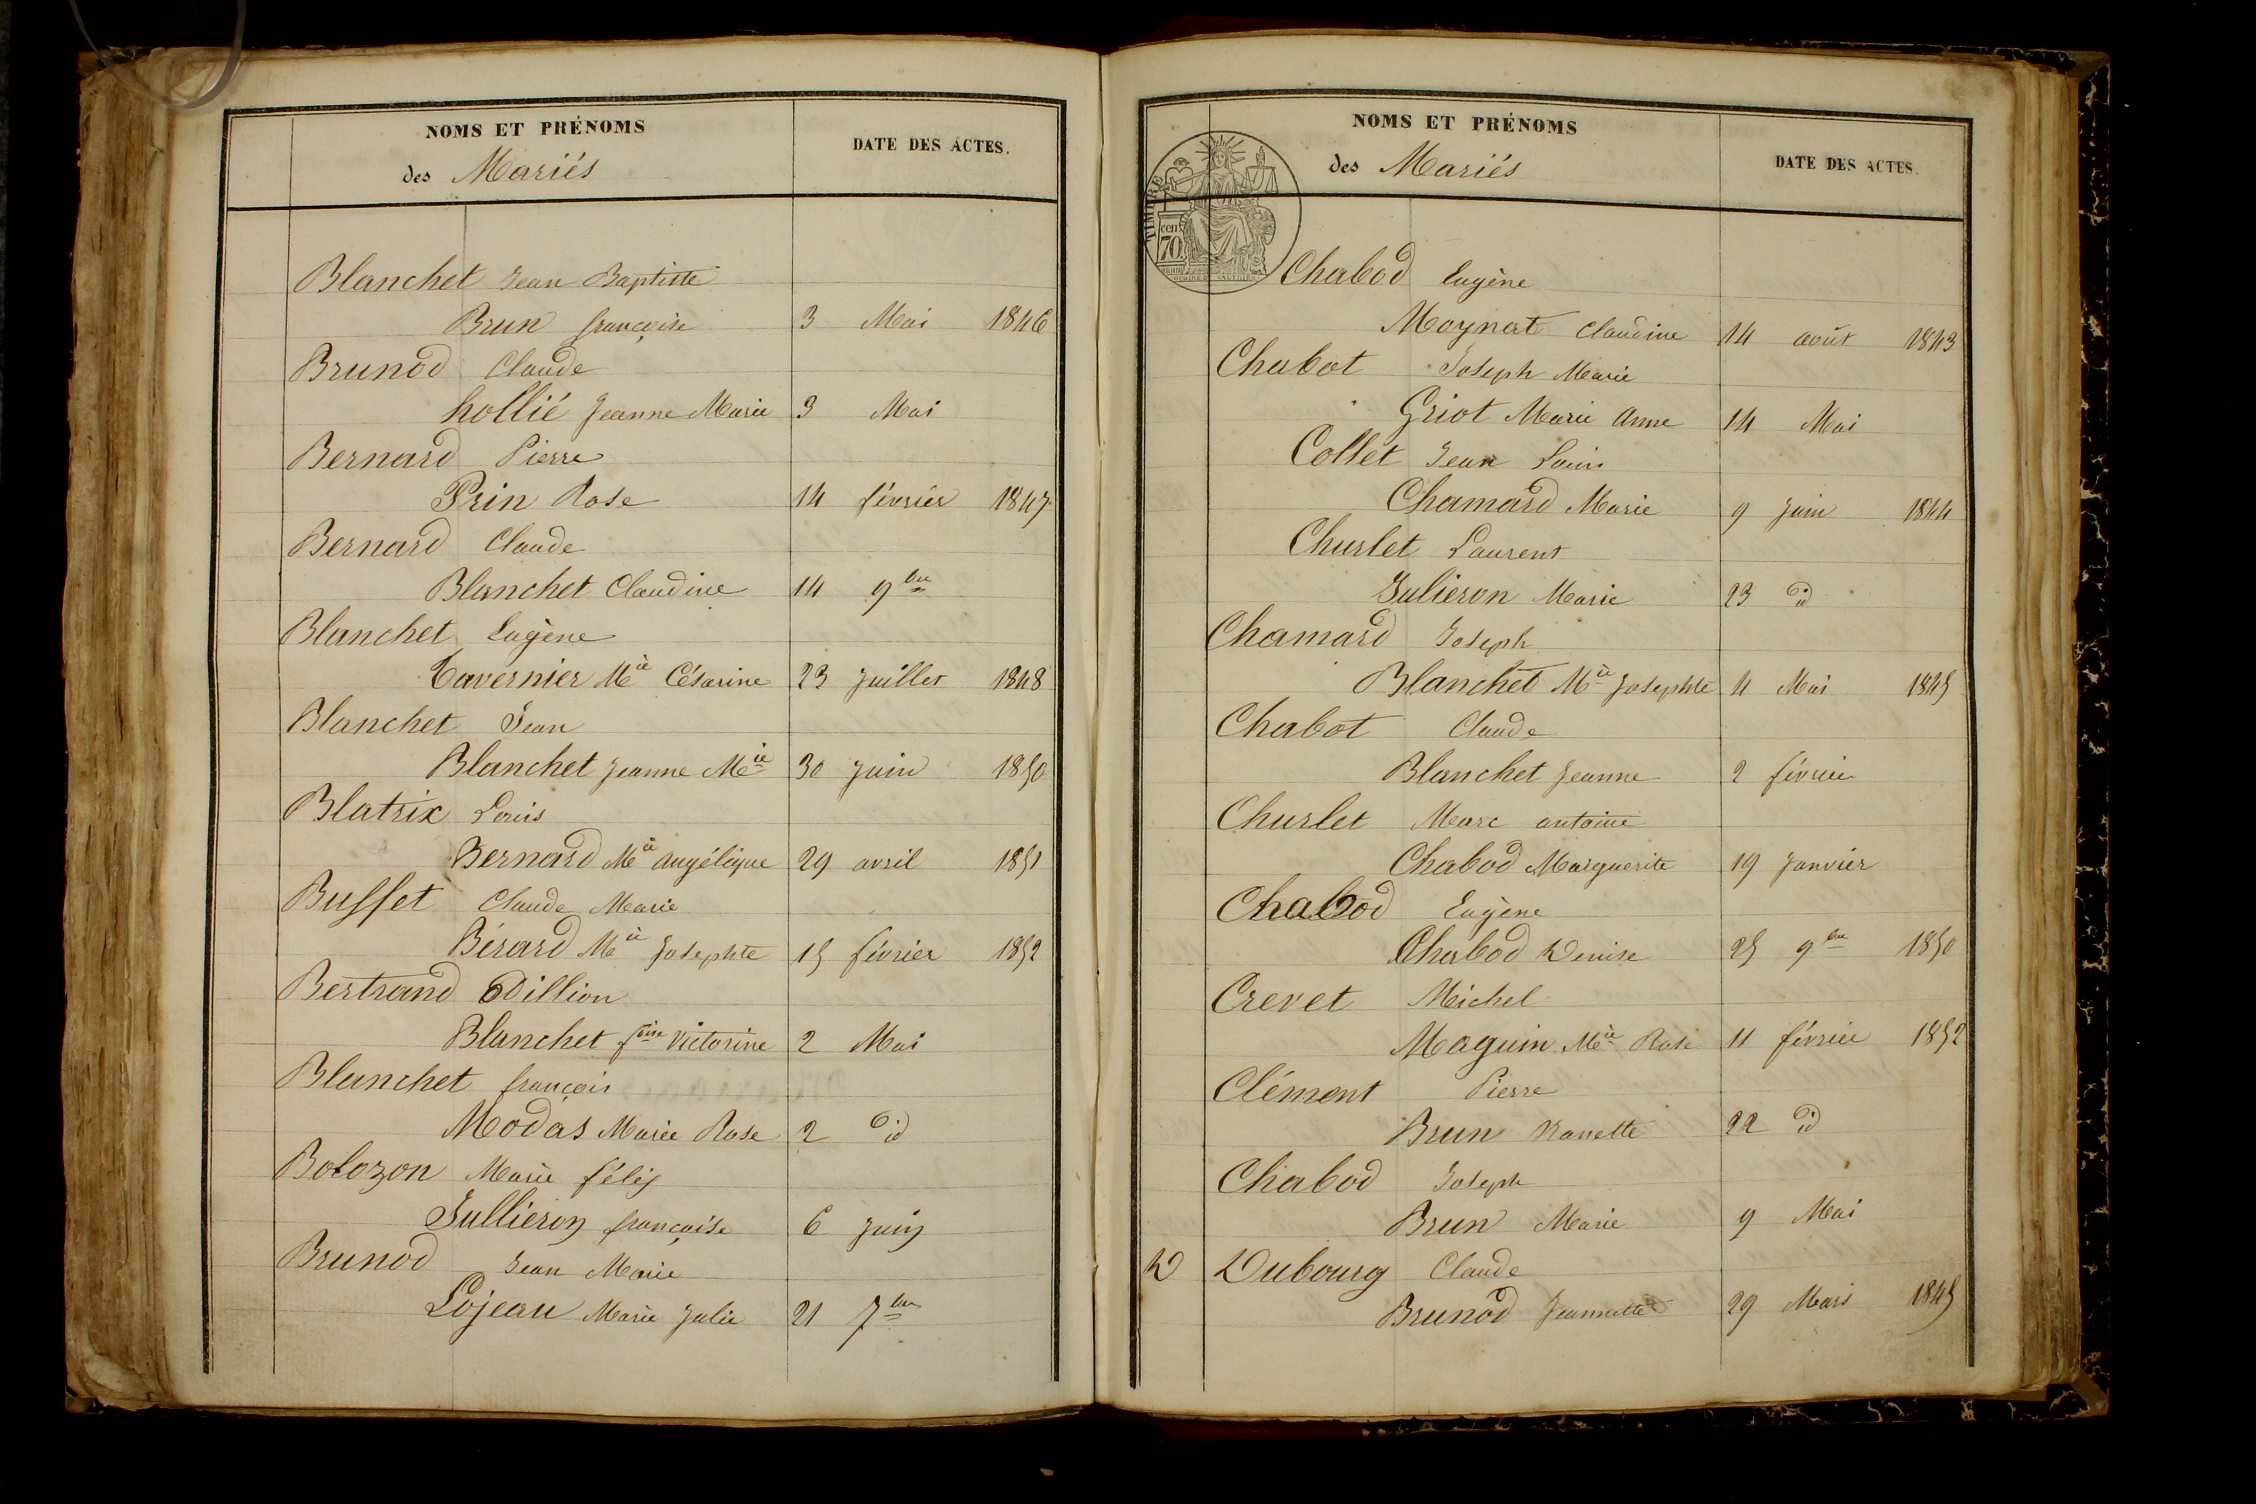 NOMS ET PRÉNOMS
des Mariés
DATE DES ACTES.
Blanchet Jean Baptiste
Brun françoise 3 Mai 1846
Brunod Claude
hollié Jeanne Marie 3 Mai
Bernard Pierre
Prin Rose 14 février 1847
Bernard Claude
Blanchet Claudine 14 9bre
Blanchet Eugène
Tavernier Mie Césarine 23 Juillet 1848
Blanchet Jean
Blanchet Jeanne Mie 30 Juin 1850
Blatrix Louis
Bernard Mie Angélique 29 avril 1851
Buffet Claude Marie
Bérard Mie Josephte 15 février 1852
Bertrand Odillion
Blanchet foise Victorine 2 Mai
Blanchet françois
Modas Marie Rose 2 id
Bolozon Marie félix
Jullieron françoise 6 Juin
Brunod Jean Marie
Lojeau Marie Julie 21 7bre
NOMS ET PRÉNOMS
des Mariés
DATE DES ACTES.
TIMBRE
70 cent
Chabod Eugène
Moynat Claudine 14 août 1843
Chabot Joseph Marie
Griot Marie Anne 14 Mai
Collet Jean Louis
Chamard Marie 9 Juin 1844
Churlet Laurent
Julieron Marie 23 id
Chamard Joseph
Blanchet Mie Josephte 4 Mai 1845
Chabot Claude
Blanchet Jeanne 2 février
Churlet Marc antoine
Chabod Marguerite 19 Janvier
Chabod Eugène
Chabod Denise 25 9bre 1850
Crevet Michel
Maguin Mie Rose 11 février 1852
Clément Pierre
Brun Nanette 22 id
Chabod Joseph
Brun Marie 9 Mai
D Dubourg Claude
Brunod Jeannette 29 Mars 1845